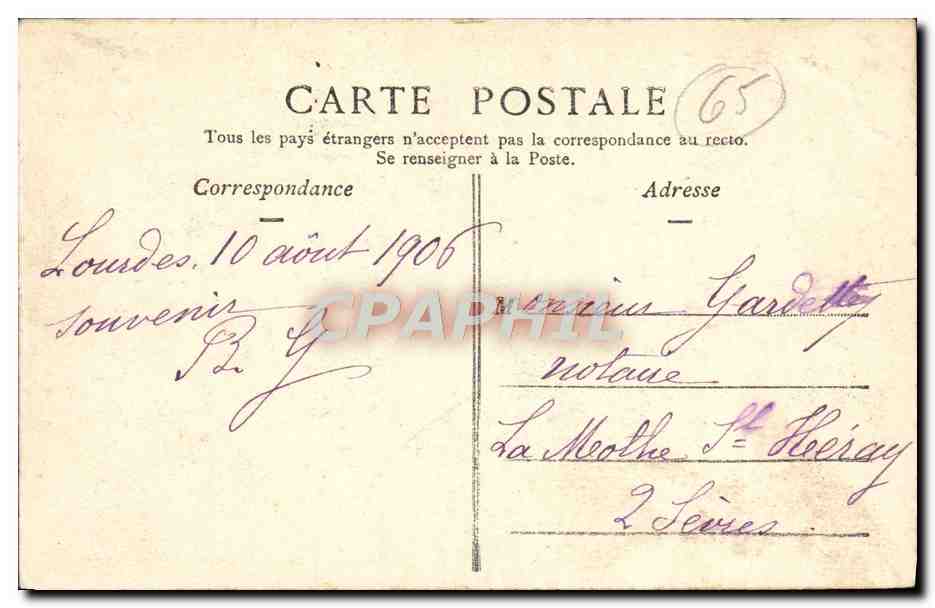 CARTE POSTALE
65
Tous les pays étrangers n'acceptent pas la correspondance au recto.
Se renseigner à la Poste.
Correspondance
Lourdes. 10 août 1906
souvenir
B. G
Adresse
Monsieur
notaire
La Mothe St Héray
2 Sèvres
CPAPHIL